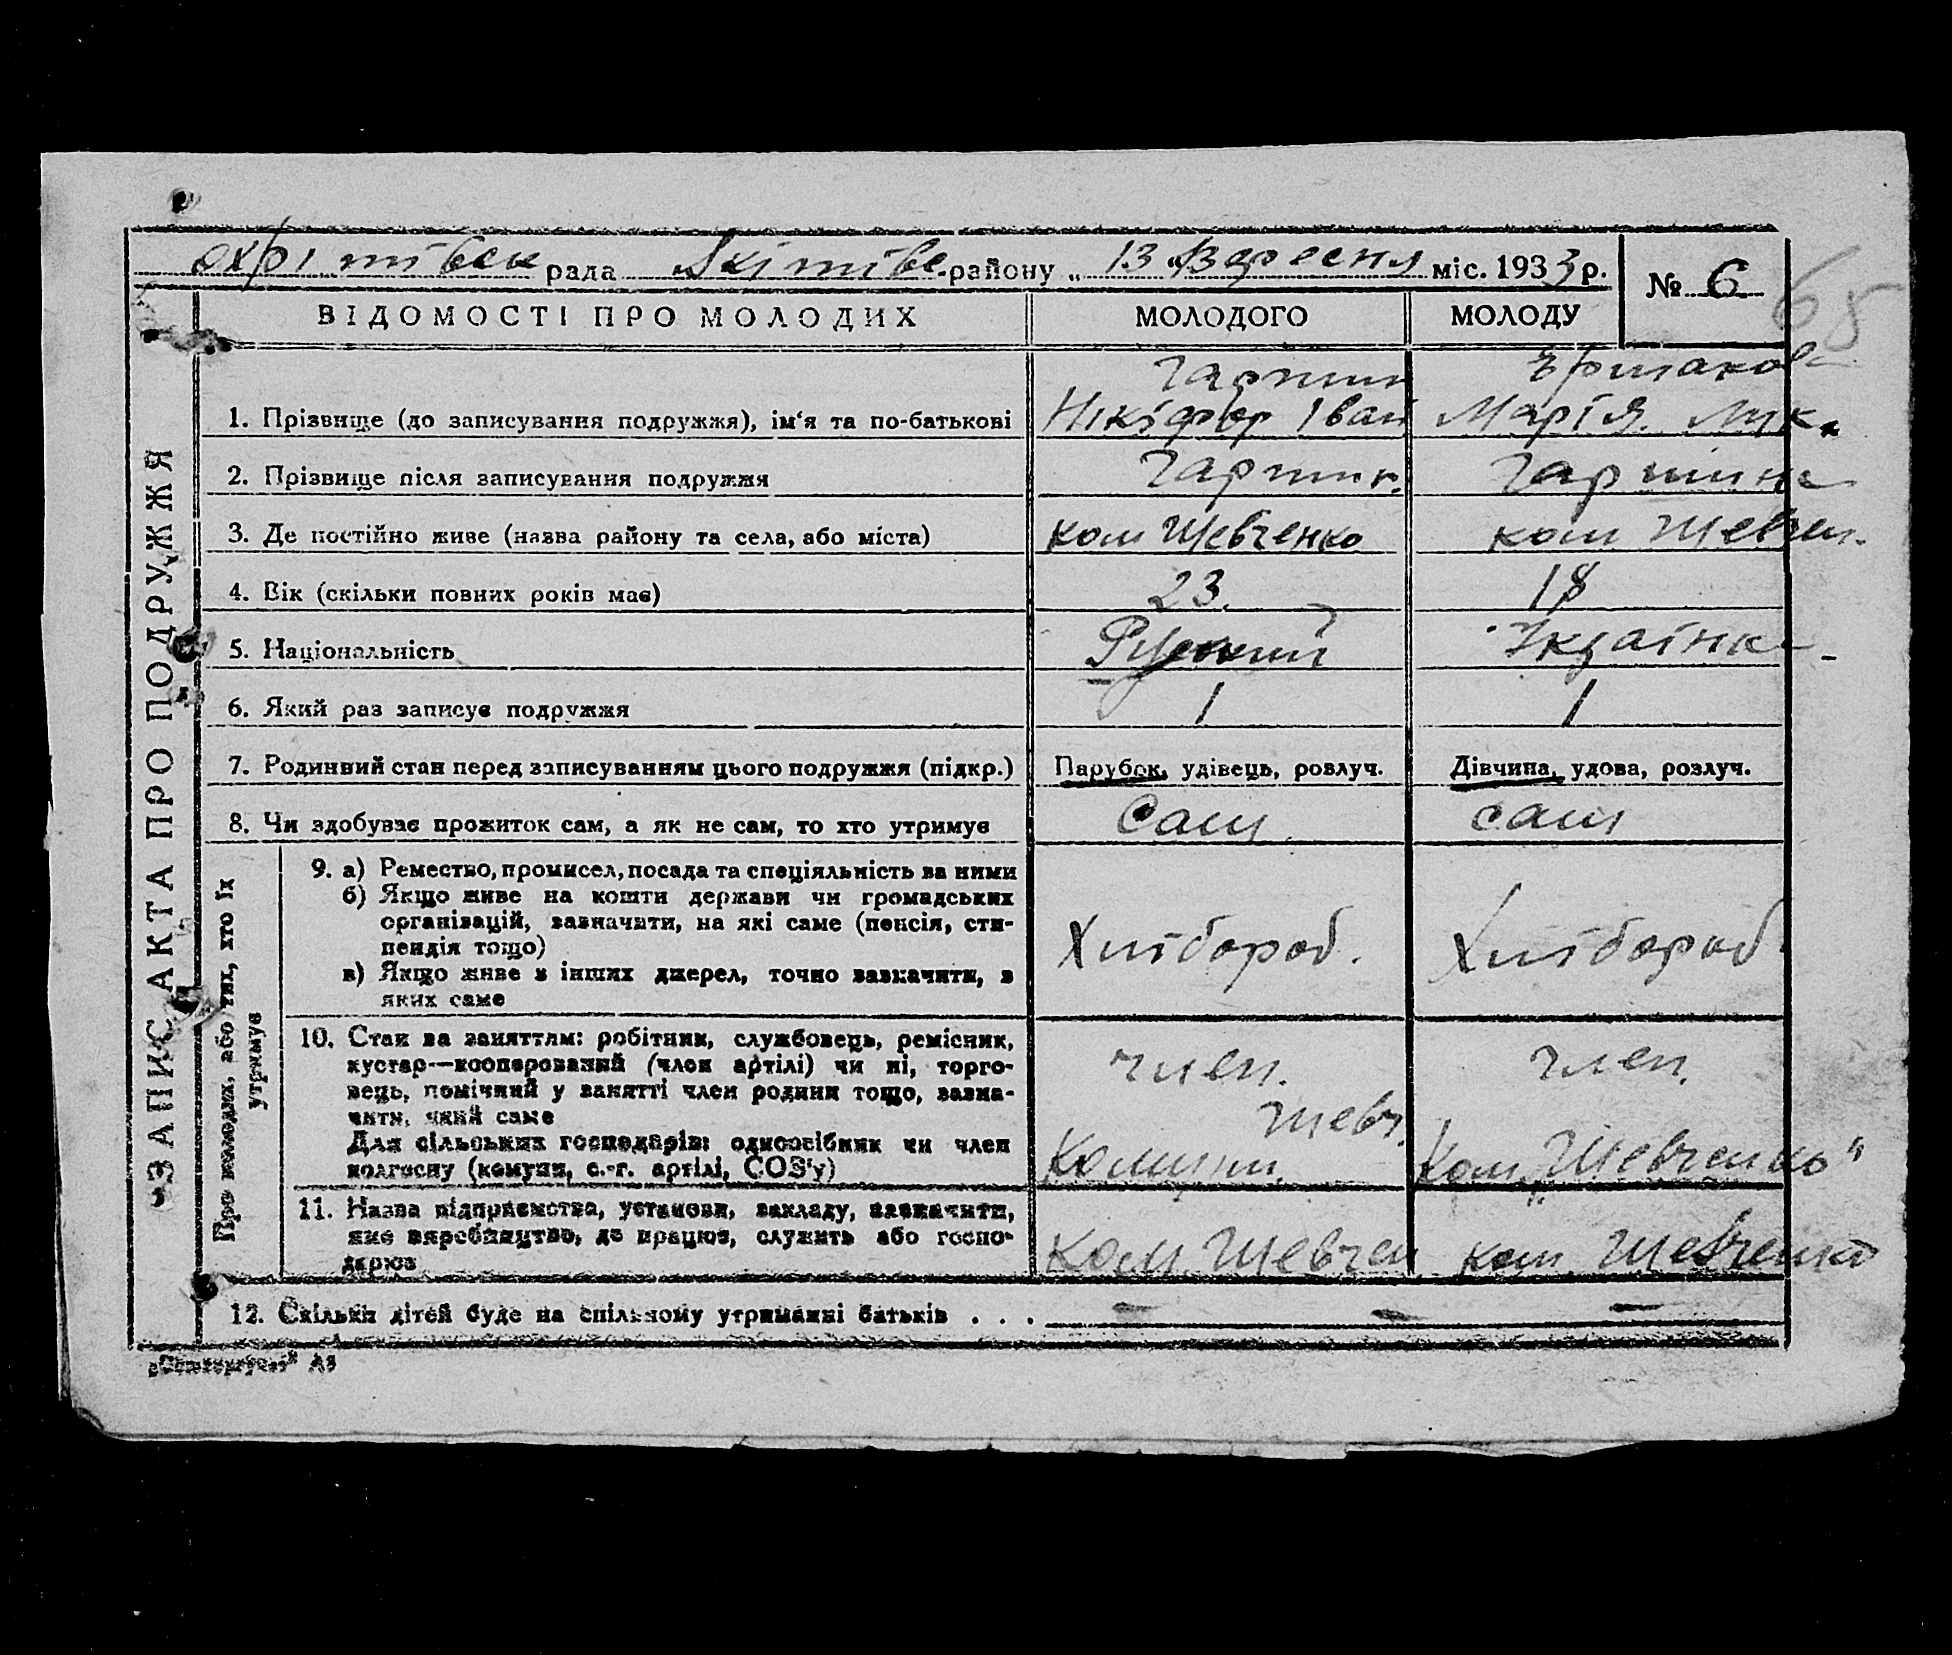 Охрімівськ рада Якімівс. району „13“ Вересня міс. 1933 р.
№ 6
65
ВІДОМОСТІ ПРО МОЛОДИХ МОЛОДОГО МОЛОДУ
ЗАПИС АКТА ПРО ПОДРУЖЖЯ
Гаршин
1. Прізвище (до записування подружжя), ім‘я та по-батькові Нікіфор Іван Марія
2. Прізвище після записування подружжя Гаршин. Гаршина
3. Де постійно живе (назва району та села, або міста) ком Шевченко ком Шевчен.
4. Вік (скільки повних років має) 23. 18
5. Національність Руський Українка
6. Який раз записує подружжя 1 1
7. Родинний стан перед записуванням цього подружжя (підкр.) Парубок, удівець, розлуч. Дівчина, удова, розлуч.
8. Чи здобуває прожиток сам, а як не сам, то хто утримує сам сам
Про молодих, або тих, хто їх
утримує
9. а) Ремество, промисел, посада та спеціяльність за ними
б) Якщо живе на кошти держави чи громадських
організацій, зазначити, на які саме (пенсія, сти-
пендія тощо)
Хлібороб. Хлібороб
в) Якщо живе з інших джерел, точно зазначити, з
яких саме
10. Стан за заняттям: робітник, службовець, ремісник,
кустар—кооперований (член артілі) чи ні, торго-
вець, помічний у занятті член родини тощо, зазна-
чити, який саме
член. член.
Шевч.
Для сільських господарів: односібник чи член
колгоспу (комуни, с.-г. артілі, СОЗ‘у) Комуни. Ком. „Шевченко“
11. Назва підприємства, установи, закладу, зазначити,
яке виробництво, де працює, служить або госпо-
дарює ком. Шевчен ком. Шевченко
12. Скільки дітей буде на спільному утриманні батьків . . . — — —